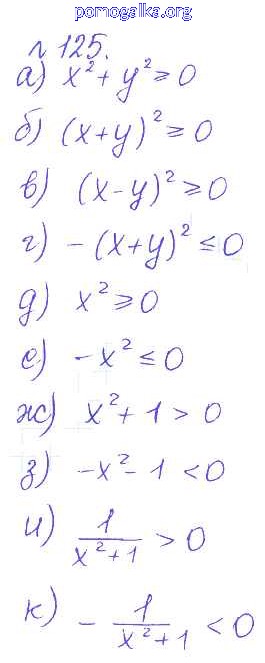 pomogalka.org
n 125.
а) x² + y² ≥ 0
б) (x+y)² ≥ 0
в) (x-y)² ≥ 0
г) -(x+y)² ≤ 0
д) x² ≥ 0
е) -x² ≤ 0
ж) x² + 1 > 0
з) -x² - 1 < 0
и) 1/(x²+1) > 0
к) - 1/(x²+1) < 0